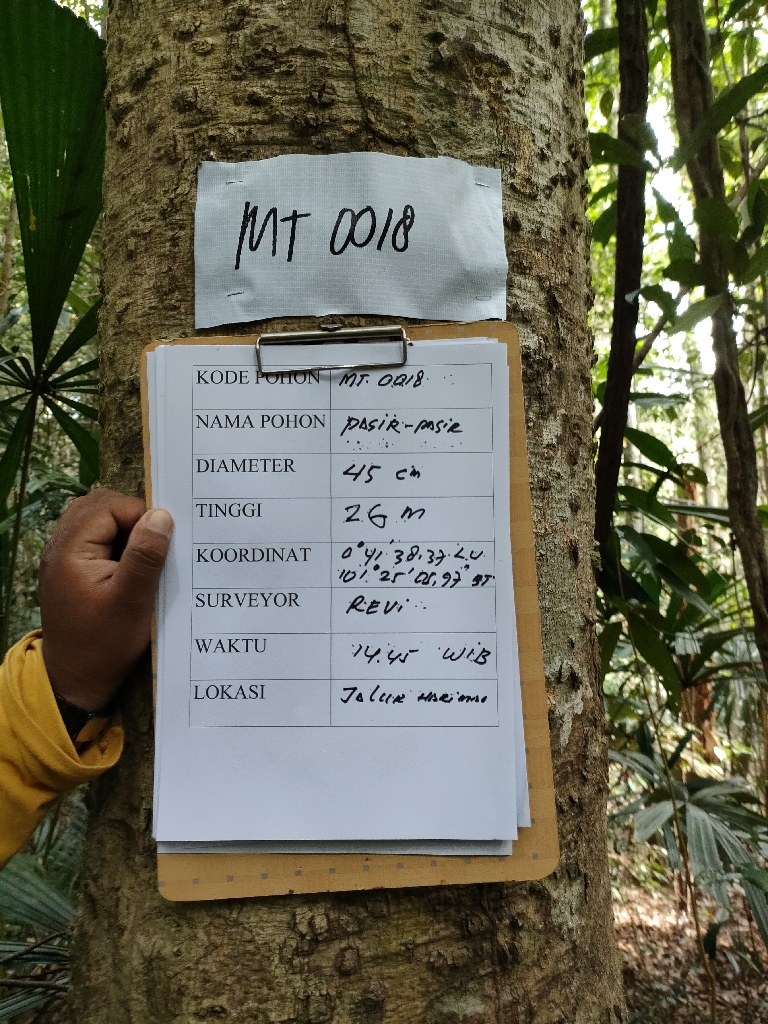 MT 0018
KODE POHON MT. 0018
NAMA POHON PASIR-PASIR
DIAMETER 45 cm
TINGGI 26 M
KOORDINAT 0°41'38.37 LU
101°25'05,97" BT
SURVEYOR REVI
WAKTU 14.45 WIB
LOKASI JALUR HARIMAU